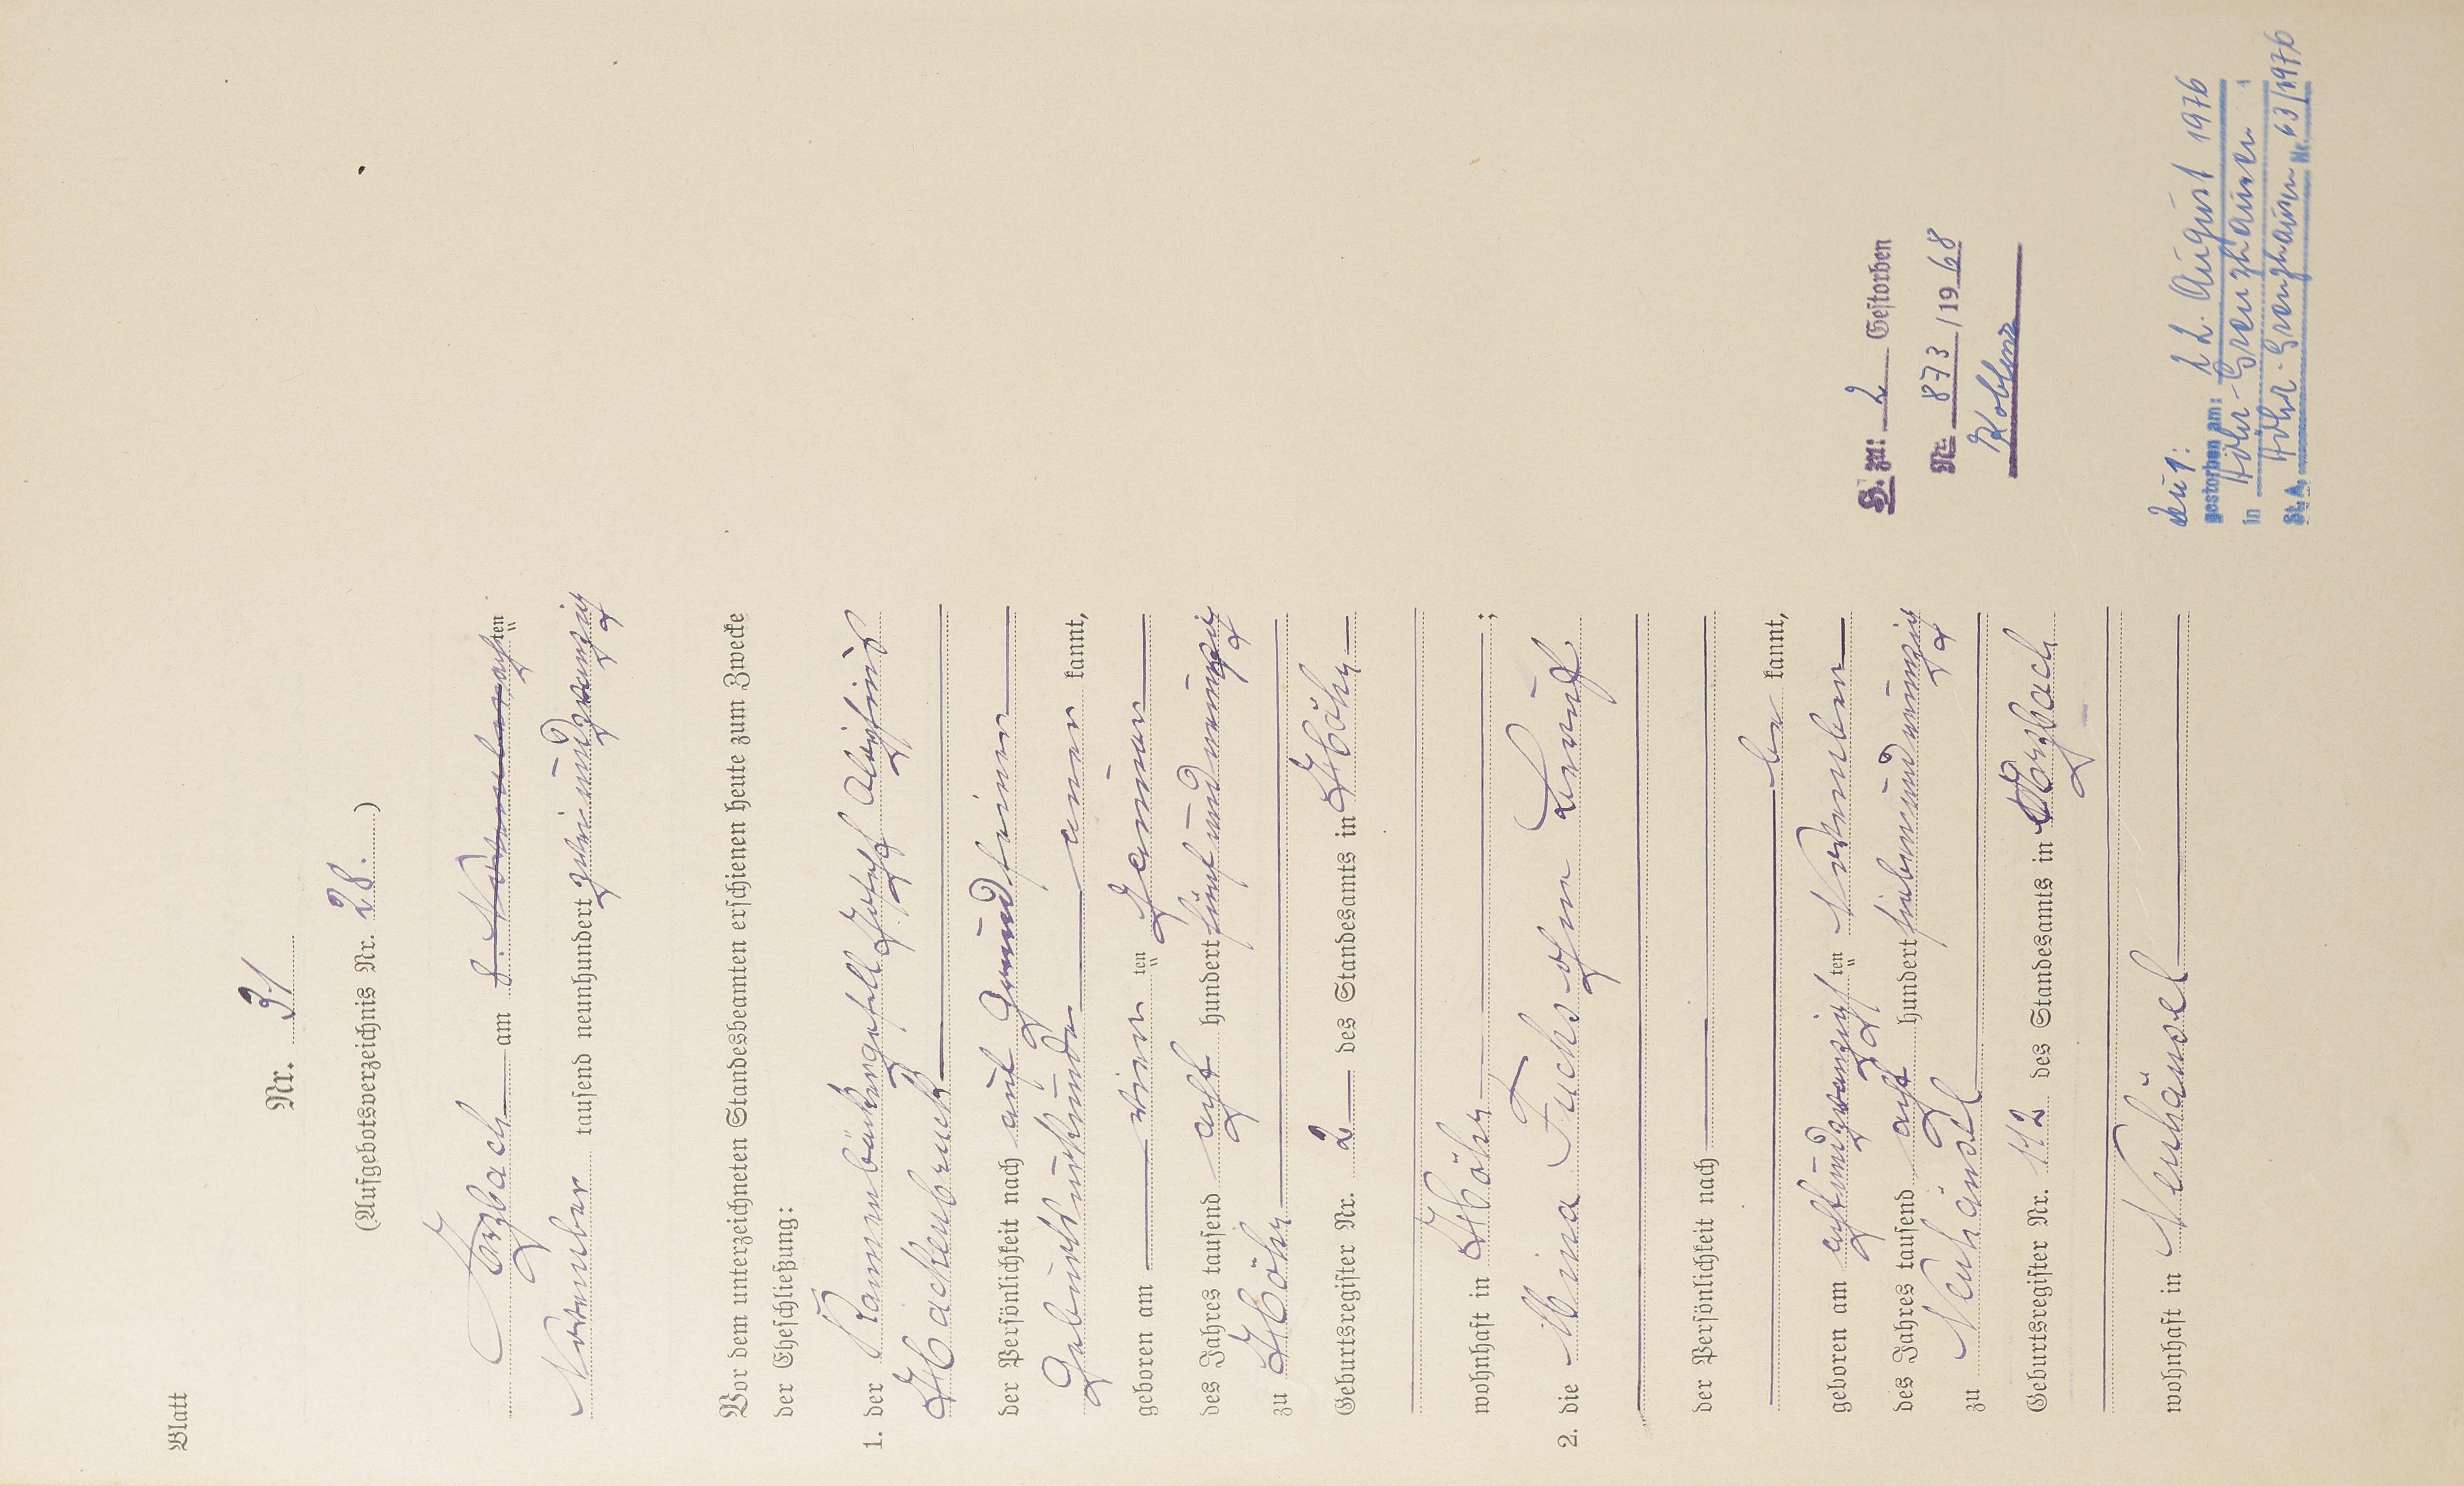 Blatt
Nr. 31
(Aufgebotsverzeichnis Nr. 28.)
Arzbach am 8. November achten
November tausend neunhundert zweiundzwanzig
Vor dem unterzeichneten Standesbeamten erschienen heute zum Zwecke
der Eheschließung:
1. der Kannenbäckergeselle Joseph Aloysius
Hachenbruch
der Persönlichkeit nach auf Grund seiner
Geburtsurkunde aner kannt,
geboren am vierten Januar
des Jahres tausend acht hundert fünfundneunzig
zu Höhr
Geburtsregister Nr. 2 des Standesamts in Höhr
wohnhaft in Höhr ;
2. die Mina Fuchs ohne Beruf
der Persönlichkeit nach
be kannt,
geboren am achtundzwanzigsten November
des Jahres tausend acht hundert siebenundneunzig
zu Neuhäusel
Geburtsregister Nr. 112 des Standesamts in Arzbach
wohnhaft in Neuhäusel
H. zu: 2 Gestorben
Nr. 873/1968
Koblenz
zu 1:
gestorben am: 22. August 1976
in Höhr-Grenzhausen
St. A. Höhr-Grenzhausen Nr. 63/1976